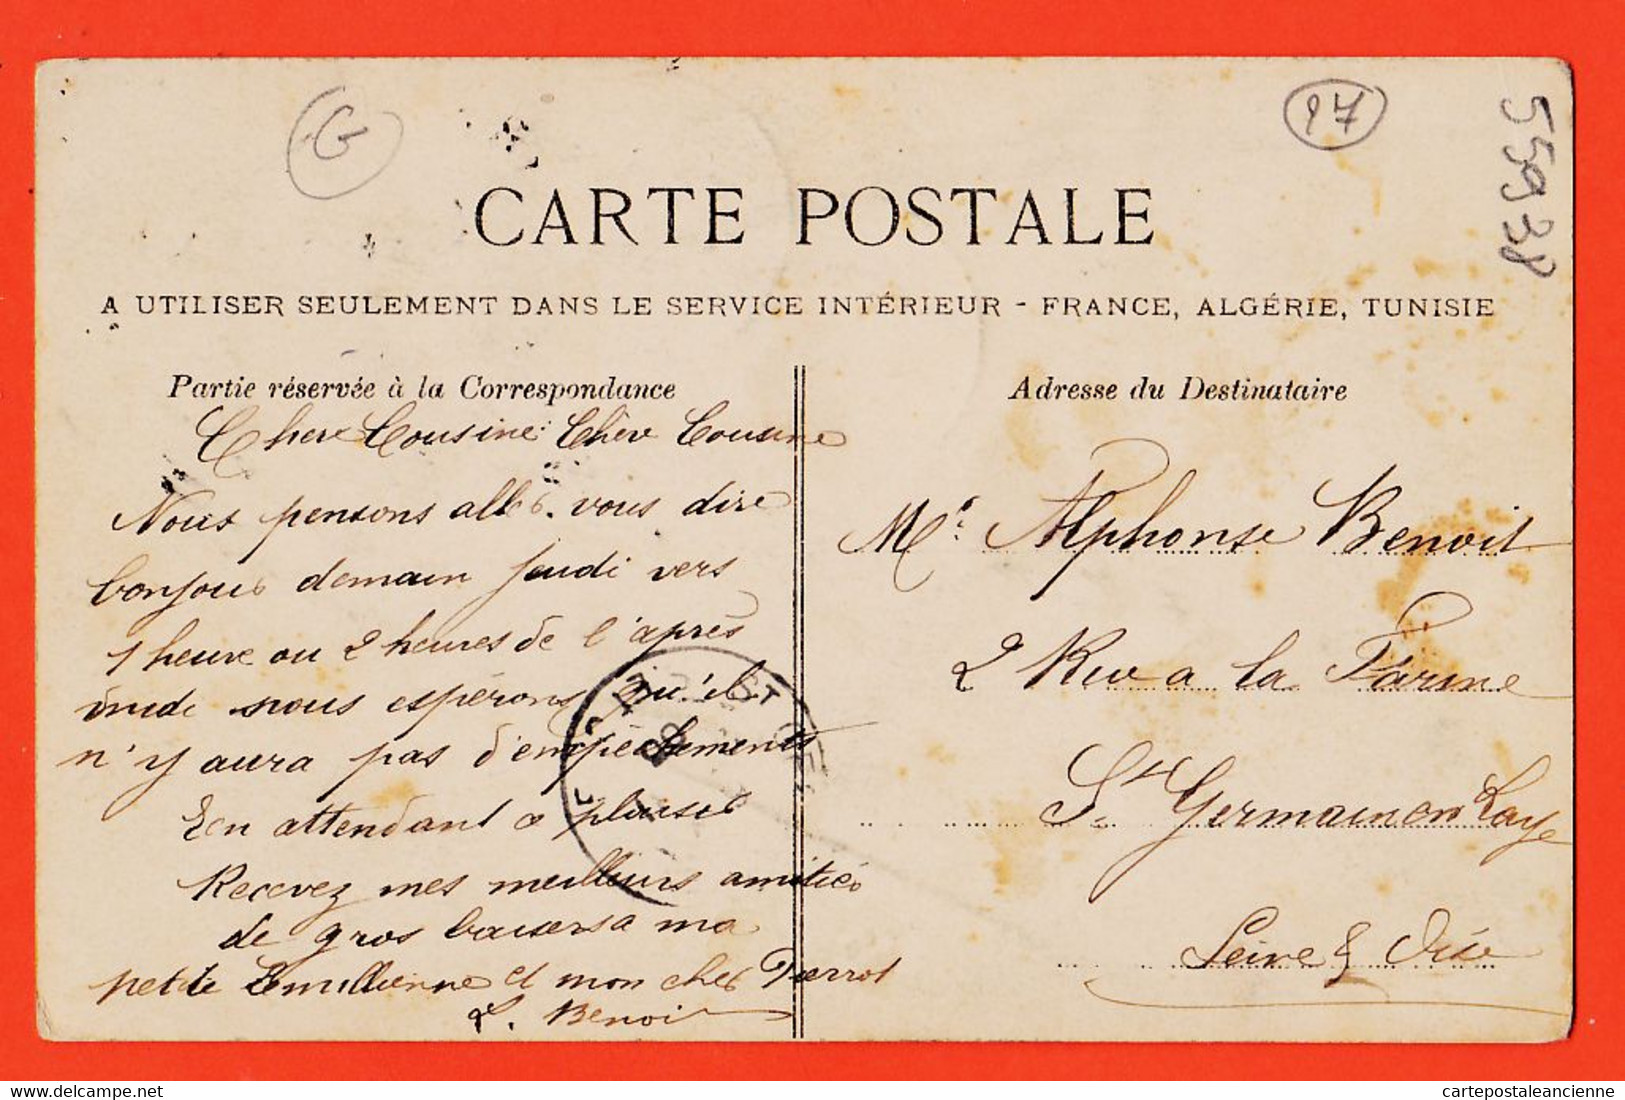 G
97
55938
CARTE POSTALE
A UTILISER SEULEMENT DANS LE SERVICE INTÉRIEUR - FRANCE, ALGÉRIE, TUNISIE
Partie réservée à la Correspondance
Chere Cousine Chère Cousine
Nous pensons aller vous dire
bonjour demain jeudi vers
1 heure ou 2 heures de l'après
midi nous esperons qu'il
n'y aura pas d'empêchements
En attendant ce plaisir
Recevez mes meilleurs amitiés
de gros baisers a ma
petite Emillienne et mon cher Pierrot
L. Benoit
Adresse du Destinataire
Mr Alphonse Benoit
2 Rue a la Farine
St Germain en Laye
Seine & Oise
delcampe.net
cartepostaleancienne